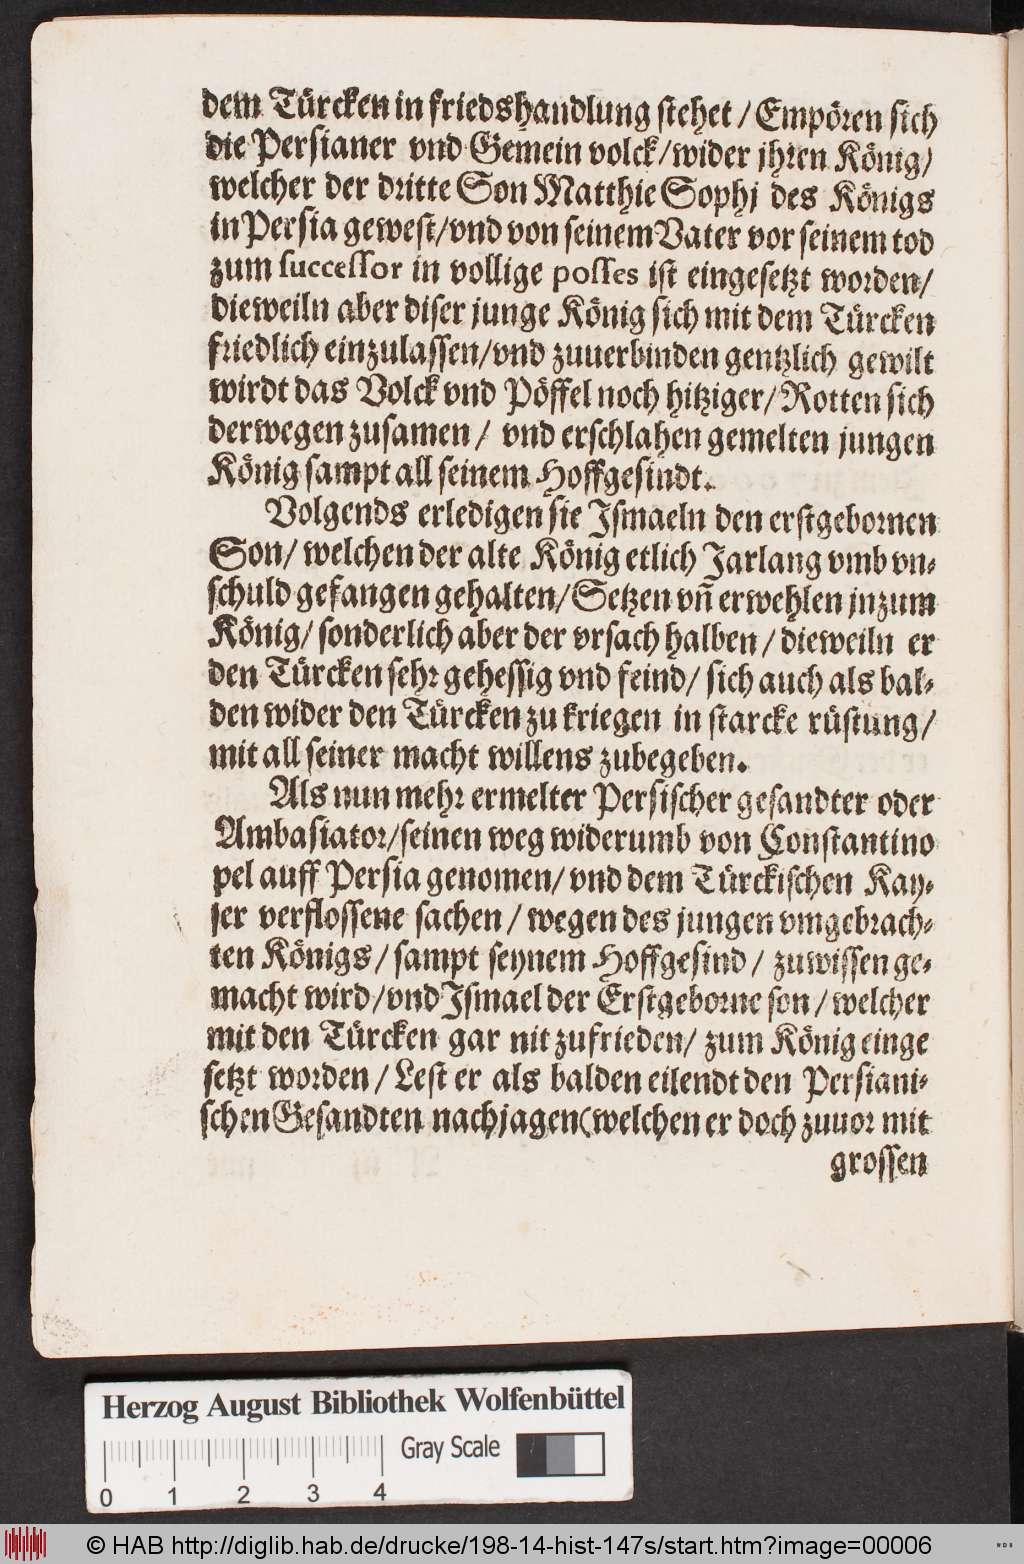 dem Türcken in friedshandlung stehet / Empören sich
die Persianer vnd Gemein volck / wider jhren König /
welcher der dritte Son Matthie Sophj des Königs
in Persia gewest / vnd von seinem Vater vor seinem tod
zum successor in vollige posses ist eingesetzt worden /
dieweiln aber diser junge König sich mit dem Türcken
friedlich einzulassen / vnd zuuerbinden gentzlich gewilt
wirdt das Volck vnd Pöffel noch hitziger / Rotten sich
derwegen zusamen / vnd erschlahen gemelten jungen
König sampt all seinem Hoffgesindt.
Volgends erledigen sie Ismaeln den erstgebornen
Son / welchen der alte König etlich Jarlang vmb vn-
schuld gefangen gehalten / Setzen vn̄ erwehlen jnzum
König / sonderlich aber der vrsach halben / dieweiln er
den Türcken sehr gehessig vnd feind / sich auch als bal-
den wider den Türcken zu kriegen in starcke rüstung /
mit all seiner macht willens zubegeben.
Als nun mehr ermelter Persischer gesandter oder
Ambasiator / seinen weg widerumb von Constantino
pel auff Persia genomen / vnd dem Türckischen Kay-
ser verflossene sachen / wegen des jungen vmgebrach-
ten Königs / sampt seynem Hoffgesind / zuwissen ge-
macht wird / vnd Ismael der Erstgeborne son / welcher
mit den Türcken gar nit zufrieden / zum König einge
setzt worden / Lest er als balden eilendt den Persiani-
schen Gesandten nachjagen (welchen er doch zuuor mit
grossen
Herzog August Bibliothek Wolfenbüttel
Gray Scale
0 1 2 3 4
© HAB http://diglib.hab.de/drucke/198-14-hist-147s/start.htm?image=00006